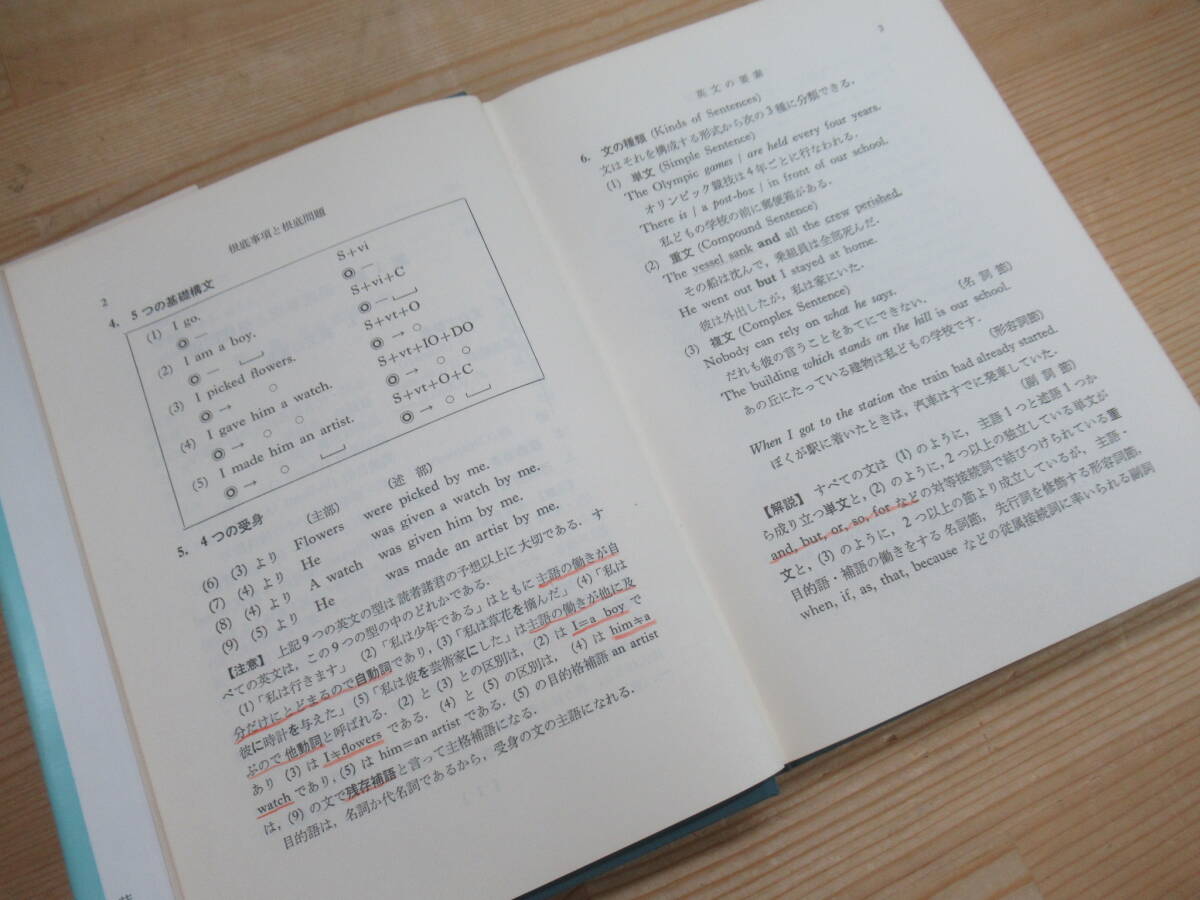 2
根底事項と根底問題
4. 5つの基礎構文
(1) I go. S+vi
◎ — ◎ —
(2) I am a boy. S+vi+C
◎ — ◎ —
(3) I picked flowers. S+vt+O
◎ → ○ ◎ → ○
(4) I gave him a watch. S+vt+IO+DO
◎ → ○ ○ ◎ → ○ ○
(5) I made him an artist. S+vt+O+C
◎ → ○ ◎ → ○
5. 4つの受身 (主部) (述部)
(6) (3) より Flowers were picked by me.
(7) (4) より He was given a watch by me.
(8) (4) より A watch was given him by me.
(9) (5) より He was made an artist by me.
【注意】 上記9つの英文の型は読者諸君の予想以上に大切である.す
べての英文は,この9つの型の中のどれかである.
(1)「私は行きます」 (2)「私は少年である」はともに主語の働きが自
分だけにとどまるので自動詞であり,(3)「私は草花を摘んだ」(4)「私は
彼に時計を与えた」(5)「私は彼を芸術家にした」は主語の働きが他に及
ぶので他動詞と呼ばれる.(2) と (3) との区別は,(2) は I=a boy で
あり (3) は I≠flowers である.(4) と (5) の区別は,(4) は him≠a
watch であり,(5) は him=an artist である.(5) の目的格補語 an artist
は,(9) の文で残存補語と言って主格補語になる.
目的語は,名詞か代名詞であるから,受身の文の主語になれる.
英文の要素
3
6. 文の種類 (Kinds of Sentences)
文はそれを構成する形式から次の3種に分類できる.
(1) 単文 (Simple Sentence)
The Olympic games | are held every four years.
オリンピック競技は4年ごとに行なわれる.
There is | a post-box | in front of our school.
私どもの学校の前に郵便箱がある.
(2) 重文 (Compound Sentence)
The vessel sank and all the crew perished.
その船は沈んで,乗組員は全部死んだ.
He went out but I stayed at home.
彼は外出したが,私は家にいた.
(3) 複文 (Complex Sentence)
Nobody can rely on what he says. (名詞節)
だれも彼の言うことをあてにできない.
The building which stands on the hill is our school.
あの丘にたっている建物は私どもの学校です. (形容詞節)
When I got to the station the train had already started.
ぼくが駅に着いたときは,汽車はすでに発車していた. (副詞節)
【解説】 すべての文は (1) のように,主語1つと述語1つか
ら成り立つ単文と,(2) のように,2つ以上の独立している単文が
and, but, or, so, for などの対等接続詞で結びつけられている重
文と,(3) のように,2つ以上の節より成立しているが,主語・
目的語・補語の働きをする名詞節,先行詞を修飾する形容詞節,
when, if, as, that, because などの従属接続詞に率いられる副詞